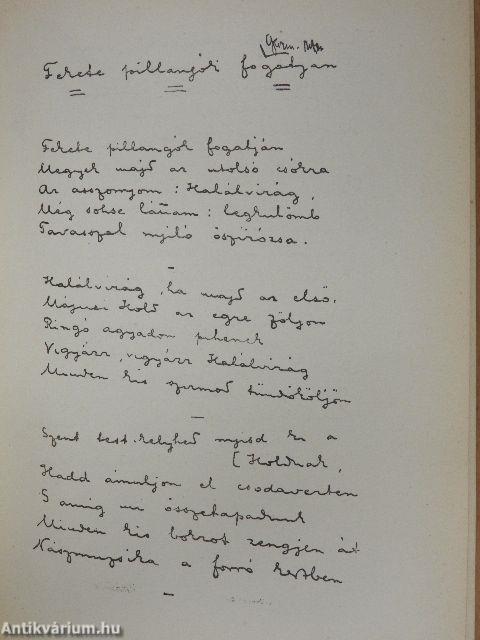 Fekete pillangók fogatján
Fekete pillangók fogatján
Megyek majd az utolsó csókra
Az asszonyom: Halálvirág,
Még sohse láttam: legkülömb
Tavasszal nyiló őszirózsa.
Halálvirág, ha majd az első,
Májusi Hold az égre jőljön
Ringó ágyadon pihenek
Vigyázz, vigyázz Halálvirág
Minden kis szirmod tündököljön
Szent test-kelyhed nyisd ki a
[Holdnak,
Hadd ámuljon el csodaverten
S amig mi összetapadunk
Minden kis bokrot zengjen át
Nászmuzsika a forró kertben
Antikvárium.hu